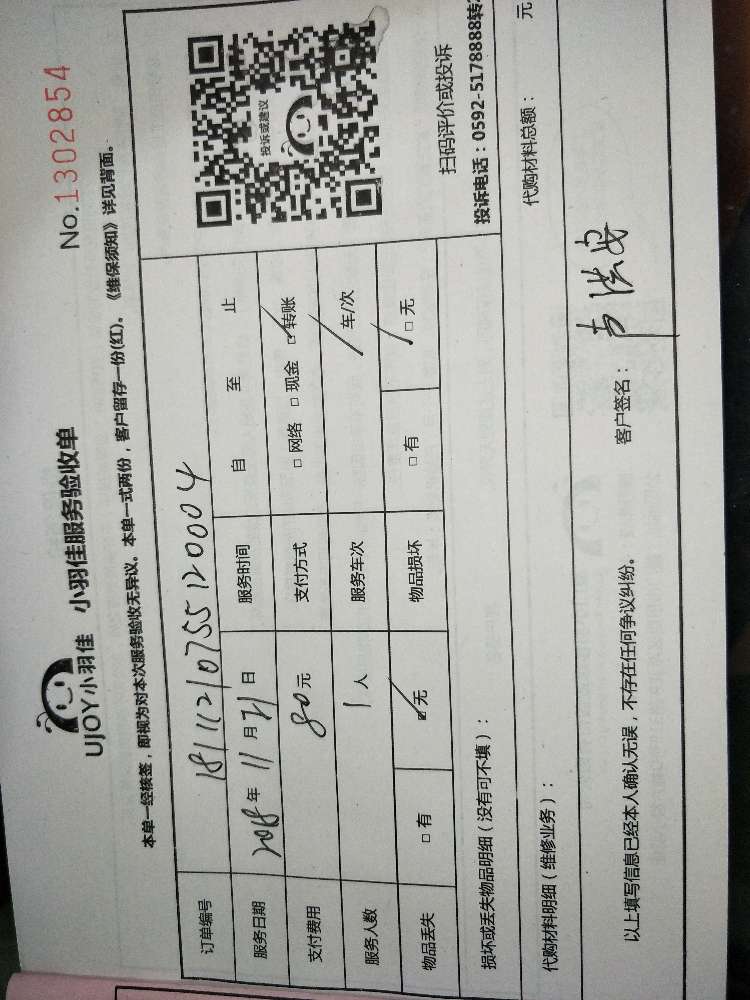 UJOY小羽佳 小羽佳服务验收单 No.1302854
本单一经核签，即视为对本次服务验收无异议。本单一式两份，客户留存一份(红)。《维保须知》详见背面。
订单编号 1811210755120004
服务日期 2018年11月21日 服务时间 自 至 止
支付费用 80元 支付方式 □网络 □现金 □转账
服务人数 1人 服务车次 / 车/次
物品丢失 □有 □无 物品损坏 □有 □无
投诉或建议
扫码评价或投诉
投诉电话：0592-5178888转
损坏或丢失物品明细（没有可不填）：
代购材料明细（维修业务）： 代购材料总额： 元
以上填写信息已经本人确认无误，不存在任何争议纠纷。 客户签名：